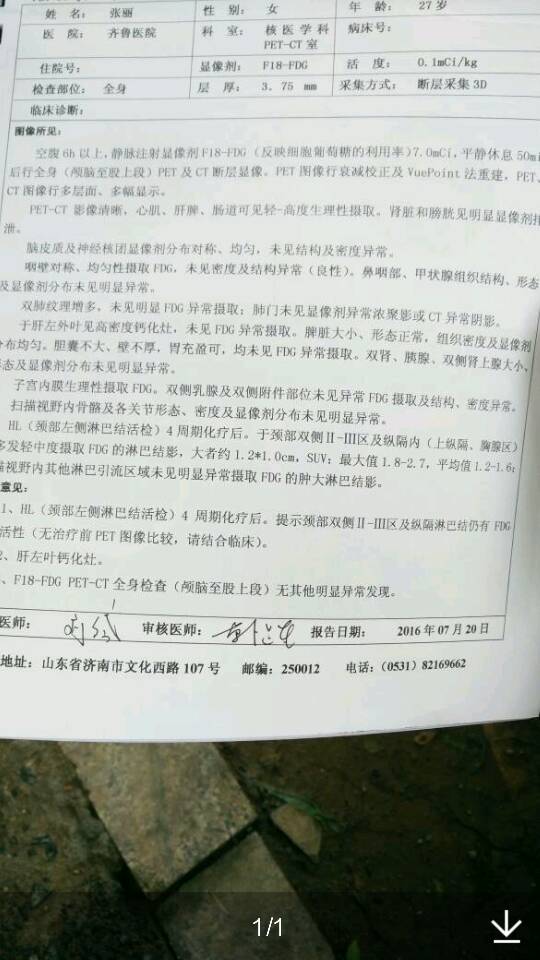 姓 名: 张丽 性 别: 女 年 龄: 27岁
医 院: 齐鲁医院 科 室: 核医学科 PET-CT室 病床号:
住院号: 显像剂: F18-FDG 活 度: 0.1mCi/kg
检查部位: 全身 层 厚: 3.75 mm 采集方式: 断层采集3D
临床诊断:
图像所见:
空腹6h以上,静脉注射显像剂F18-FDG(反映细胞葡萄糖的利用率)7.0mCi,平静休息50mi
后行全身(颅脑至股上段)PET及CT断层显像。PET图像行衰减校正及VuePoint法重建,PET、
CT图像行多层面、多幅显示。
PET-CT 影像清晰,心肌、肝脾、肠道可见轻-高度生理性摄取。肾脏和膀胱见明显显像剂排
泄。
脑皮质及神经核团显像剂分布对称、均匀,未见结构及密度异常。
咽壁对称、均匀性摄取FDG,未见密度及结构异常(良性)。鼻咽部、甲状腺组织结构、形态
及显像剂分布未见明显异常。
双肺纹理增多,未见明显FDG异常摄取;肺门未见显像剂异常浓聚影或CT异常阴影。
于肝左外叶见高密度钙化灶,未见FDG异常摄取。脾脏大小、形态正常,组织密度及显像剂
分布均匀。胆囊不大、壁不厚,胃充盈可,均未见FDG异常摄取。双肾、胰腺、双侧肾上腺大小、
形态及显像剂分布未见明显异常。
子宫内膜生理性摄取FDG。双侧乳腺及双侧附件部位未见异常FDG摄取及结构、密度异常。
扫描视野内骨骼及各关节形态、密度及显像剂分布未见明显异常。
HL(颈部左侧淋巴结活检)4周期化疗后。于颈部双侧Ⅱ-Ⅲ区及纵隔内(上纵隔、胸腺区)
多发轻中度摄取FDG的淋巴结影,大者约1.2*1.0cm,SUV:最大值1.8-2.7,平均值1.2-1.6;
描视野内其他淋巴引流区域未见明显异常摄取FDG的肿大淋巴结影。
意见:
1、HL(颈部左侧淋巴结活检)4 周期化疗后。提示颈部双侧Ⅱ-Ⅲ区及纵隔淋巴结仍有 FDG
活性(无治疗前PET图像比较,请结合临床)。
2、肝左叶钙化灶。
、F18-FDG PET-CT全身检查(颅脑至股上段)无其他明显异常发现。
医师: 审核医师: 报告日期: 2016年07月20日
地址:山东省济南市文化西路107号 邮编:250012 电话:(0531)82169662
1/1